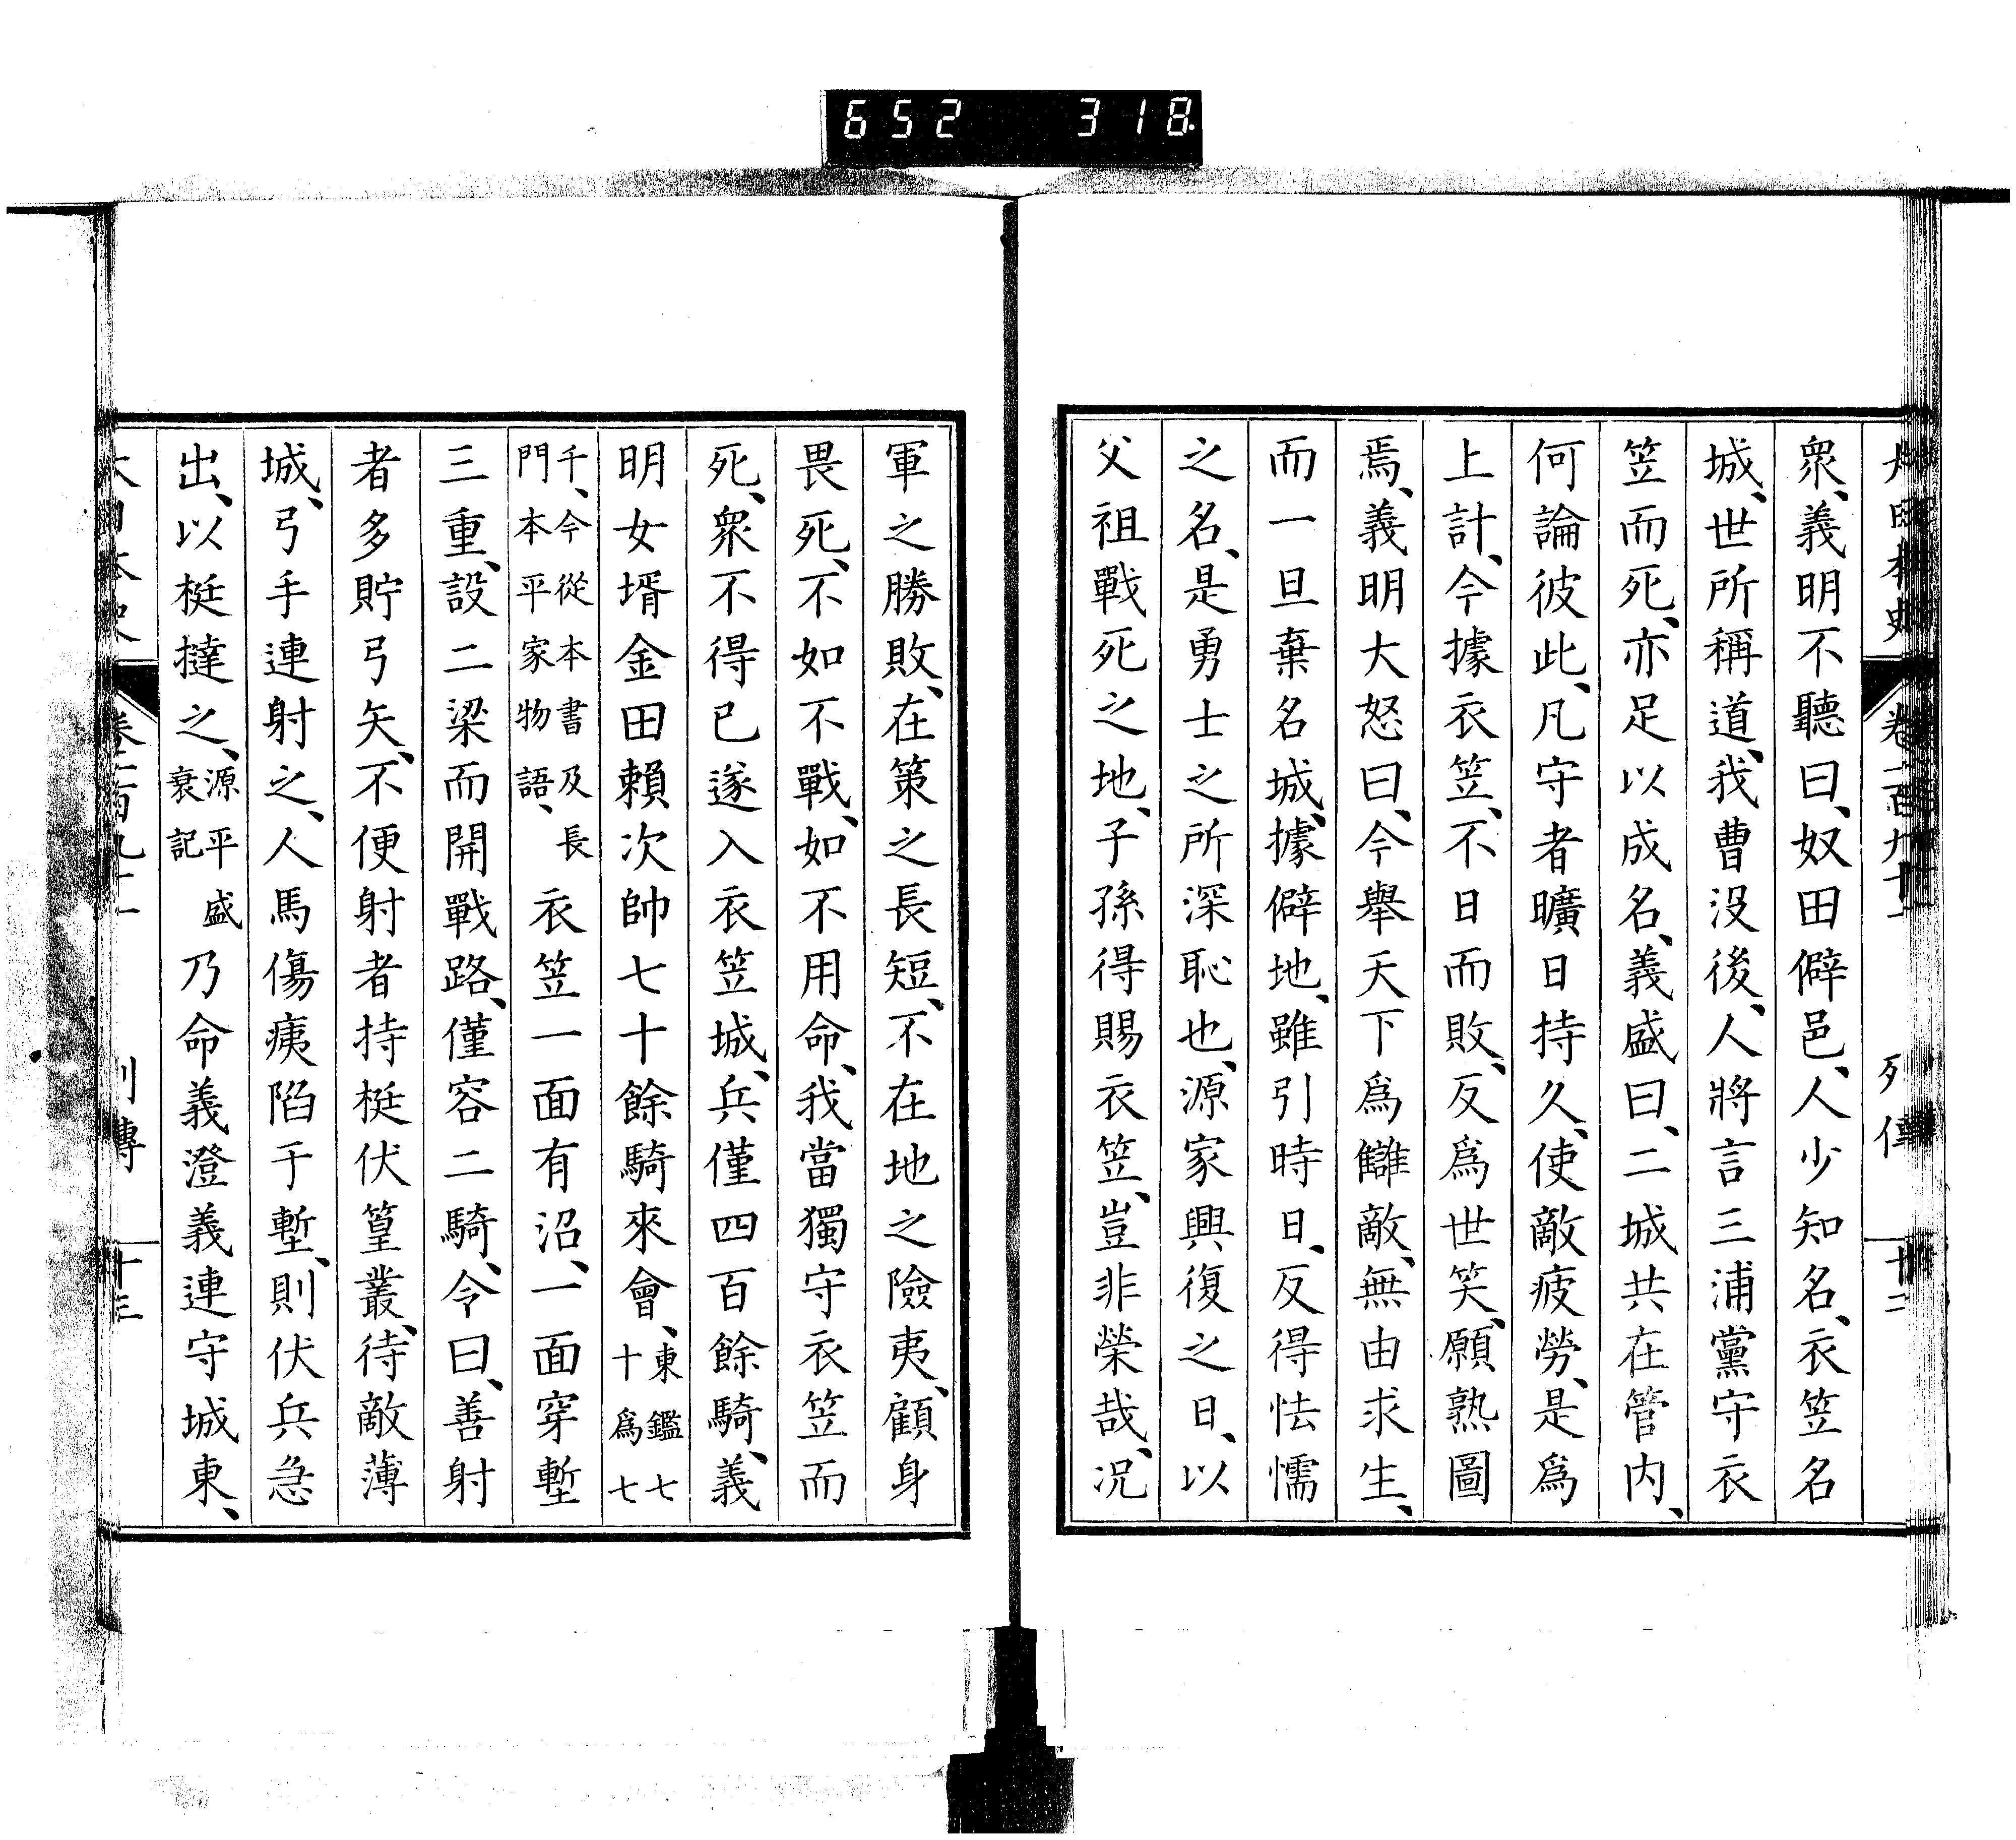 652 318
列傳 十二
衆、義明不聽曰、奴田僻邑、人少知名、衣笠名
城、世所稱道、我曹沒後、人將言三浦黨守衣
笠而死、亦足以成名、義盛曰、二城共在管内、
何論彼此、凡守者曠日持久、使敵疲勞、是爲
上計、今據衣笠、不日而敗、反爲世笑、願熟圖
焉、義明大怒曰、今舉天下爲讎敵、無由求生、
而一旦棄名城、據僻地、雖引時日、反得怯懦
之名、是勇士之所深恥也、源家興復之日、以
父祖戰死之地、子孫得賜衣笠、豈非榮哉、況
軍之勝敗、在策之長短、不在地之險夷、顧身
畏死、不如不戰、如不用命、我當獨守衣笠而
死、衆不得已遂入衣笠城、兵僅四百餘騎、義
明女壻金田賴次帥七十餘騎來會、東鑑七十爲七
千、今從本書及長門本平家物語、衣笠一面有沼、一面穿塹
三重、設二梁而開戰路、僅容二騎、令曰、善射
者多貯弓矢、不便射者持梃伏篁叢、待敵薄
城、弓手連射之、人馬傷痍陷于塹、則伏兵急
出、以梃撻之、源平盛衰記乃命義澄義連守城東、
列傳 十三